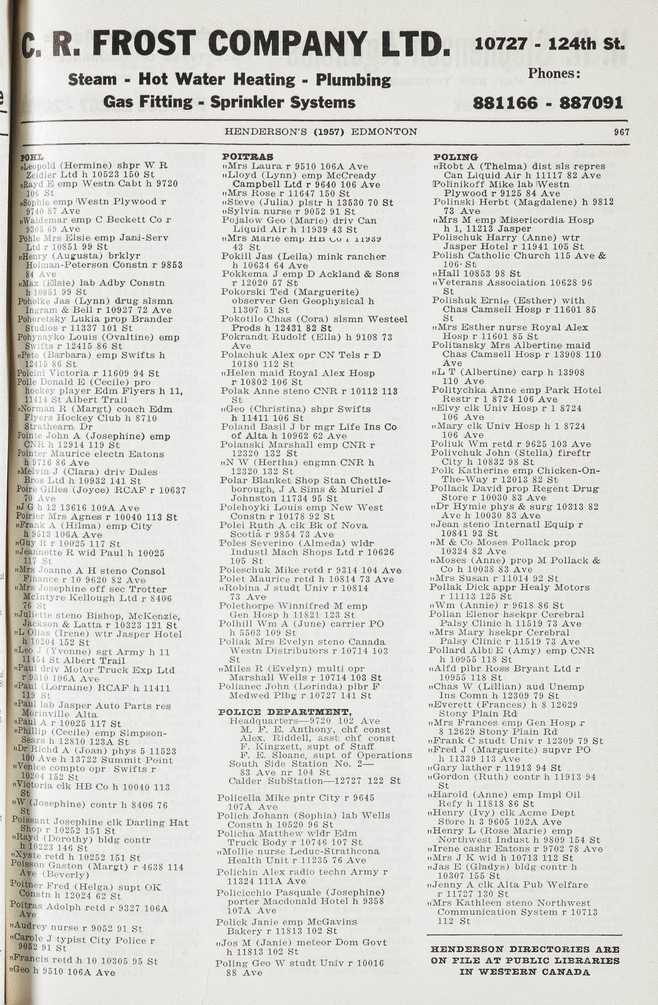 C. R. FROST COMPANY LTD.
10727 - 124th St.
Steam - Hot Water Heating - Plumbing
Phones:
Gas Fitting - Sprinkler Systems
881166 - 887091
HENDERSON'S (1957) EDMONTON 967
POHL
"Leopold (Hermine) shpr W R
Zeidler Ltd h 10523 150 St
"Rayd E emp Westn Cabt h 9720
106 St
"Sophie emp Westn Plywood r
9740 87 Ave
"Waldemar emp C Beckett Co r
9305 69 Ave
Pohle Mrs Elsie emp Jani-Serv
Ltd r 10851 99 St
"Henry (Augusta) brklyr
Holman-Peterson Constn r 9853
84 Ave
"Max (Elsie) lab Adby Constn
h 10851 99 St
Poholke Jas (Lynn) drug slsmn
Ingram & Bell r 10927 72 Ave
Pohoretsky Lukia prop Brander
Studios r 11337 101 St
Pohynayko Louis (Ovaltine) emp
Swifts r 12415 86 St
"Pete (Barbara) emp Swifts h
12415 86 St
Poicini Victoria r 11609 94 St
Poile Donald E (Cecile) pro
hockey player Edm Flyers h 11,
11414 St Albert Trail
"Norman R (Margt) coach Edm
Flyers Hockey Club h 8710
Strathearn Dr
Pointe John A (Josephine) emp
CNR h 12914 119 St
Pointer Maurice electn Eatons
h 9716 86 Ave
"Melvin J (Clara) driv Dales
Bros Ltd h 10932 141 St
Poire Gilles (Joyce) RCAF r 10637
70 Ave
"J G h 12 13616 109A Ave
Poirier Mrs Agnes r 10040 113 St
"Frank A (Hilma) emp City
h 9513 106A Ave
"Guy R r 10025 117 St
"Jeannette R wid Paul h 10025
117 St
"Mrs Joanne A H steno Consol
Finance r 10 9620 82 Ave
"Mrs Josephine off sec Trotter
McIntyre Kellough Ltd r 8406
76 St
"Juliette steno Bishop, McKenzie,
Jackson & Latta r 10323 121 St
"L Olias (Irene) wtr Jasper Hotel
h 10204 152 St
"Leo J (Yvonne) sgt Army h 11
11454 St Albert Trail
"Paul driv Motor Truck Exp Ltd
r 9510 106A Ave
"Paul (Lorraine) RCAF h 11411
119 St
"Paul lab Jasper Auto Parts res
Morinville Alta
"Paul A r 10025 117 St
"Phillip (Cecile) emp Simpson-
Sears h 12810 123A St
"Dr Richd A (Joan) phys 5 11523
100 Ave h 13722 Summit Point
"Venice compto opr Swifts r
10204 152 St
"Victoria clk HB Co h 10040 113
St
"W (Josephine) contr h 8406 76
St
Poissant Josephine clk Darling Hat
Shop r 10252 151 St
"Rayd (Dorothy) bldg contr
h 10223 146 St
"Xyste retd h 10252 151 St
Poisson Gaston (Margt) r 4638 114
Ave (Beverly)
Poitner Fred (Helga) supt OK
Constn h 12024 62 St
Poitras Adolph retd r 9327 106A
Ave
"Audrey nurse r 9052 91 St
"Carole J typist City Police r
9052 91 St
"Francis retd h 10 10305 95 St
"Geo h 9510 106A Ave
POITRAS
"Mrs Laura r 9510 106A Ave
"Lloyd (Lynn) emp McCready
Campbell Ltd r 9640 106 Ave
"Mrs Rose r 11647 150 St
"Steve (Julia) plstr h 13530 70 St
"Sylvia nurse r 9052 91 St
Pojalow Geo (Marie) driv Can
Liquid Air h 11939 43 St
"Mrs Marie emp HB Co r 11939
43 St
Pokill Jas (Leila) mink rancher
h 10634 64 Ave
Pokkema J emp D Ackland & Sons
r 12020 57 St
Pokorski Ted (Marguerite)
observer Gen Geophysical h
11307 51 St
Pokotilo Chas (Cora) slsmn Westeel
Prods h 12431 82 St
Pokrandt Rudolf (Ella) h 9108 73
Ave
Polachuk Alex opr CN Tels r D
10180 112 St
"Helen maid Royal Alex Hosp
r 10802 106 St
Polak Anne steno CNR r 10112 113
St
"Geo (Christina) shpr Swifts
h 11411 106 St
Poland Basil J br mgr Life Ins Co
of Alta h 10962 62 Ave
Polanski Marshall emp CNR r
12320 132 St
"N W (Hertha) engmn CNR h
12320 132 St
Polar Blanket Shop Stan Chettle-
borough, J A Sims & Muriel J
Johnston 11734 95 St
Polehoyki Louis emp New West
Constn r 10178 92 St
Polei Ruth A clk Bk of Nova
Scotia r 9854 73 Ave
Poles Severino (Almeda) wldr
Industl Mach Shops Ltd r 10626
105 St
Poleschuk Mike retd r 9314 104 Ave
Polet Maurice retd h 10814 73 Ave
"Robina J studt Univ r 10814
73 Ave
Polethorpe Winnifred M emp
Gen Hosp h 11821 123 St
Polhill Wm A (June) carrier PO
h 5503 109 St
Poliak Mrs Evelyn steno Canada
Westn Distributors r 10714 103
St
"Miles R (Evelyn) multi opr
Marshall Wells r 10714 103 St
Polianec John (Lorinda) plbr F
Medved Plbg r 10727 141 St
POLICE DEPARTMENT,
Headquarters—9720 102 Ave
M. F. E. Anthony, chf const
Alex. Riddell, asst chf const
F. Kingzett, supt of Staff
F. E. Sloane, supt of Operations
South Side Station No. 2—
83 Ave nr 104 St
Calder SubStation—12727 122 St
Policella Mike pntr City r 9645
107A Ave
Polich Johann (Sophia) lab Wells
Constn h 10520 96 St
Policha Matthew wldr Edm
Truck Body r 10746 107 St
"Mollie nurse Leduc-Strathcona
Health Unit r 11235 76 Ave
Polichin Alex radio techn Army r
11324 111A Ave
Policicchio Pasquale (Josephine)
porter Macdonald Hotel h 9358
107A Ave
Polick Janie emp McGavins
Bakery r 11813 102 St
"Jos M (Janie) meteor Dom Govt
h 11813 102 St
Poling Geo W studt Univ r 10016
88 Ave
POLING
"Robt A (Thelma) dist sls repres
Can Liquid Air h 11117 82 Ave
Polinikoff Mike lab Westn
Plywood r 9125 84 Ave
Polinski Herbt (Magdalene) h 9812
73 Ave
"Mrs M emp Misericordia Hosp
h 1, 11213 Jasper
Polischuk Harry (Anne) wtr
Jasper Hotel r 11941 105 St
Polish Catholic Church 115 Ave &
106 St
"Hall 10853 98 St
"Veterans Association 10628 96
St
Polishuk Ernie (Esther) with
Chas Camsell Hosp r 11601 85
St
"Mrs Esther nurse Royal Alex
Hosp r 11601 85 St
Politansky Mrs Albertine maid
Chas Camsell Hosp r 13908 110
Ave
"L T (Albertine) carp h 13908
110 Ave
Politychka Anne emp Park Hotel
Restr r 1 8724 106 Ave
"Elvy clk Univ Hosp r 1 8724
106 Ave
"Mary clk Univ Hosp h 1 8724
106 Ave
Poliuk Wm retd r 9625 103 Ave
Polivchuk John (Stella) fireftr
City h 10832 98 St
Polk Katherine emp Chicken-On-
The-Way r 12013 82 St
Pollack David prop Regent Drug
Store r 10030 83 Ave
"Dr Hymie phys & surg 10313 82
Ave h 10030 83 Ave
"Jean steno Internatl Equip r
10841 93 St
"M & Co Moses Pollack prop
10324 82 Ave
"Moses (Anne) prop M Pollack &
Co h 10038 83 Ave
"Mrs Susan r 11014 92 St
Pollak Dick appr Healy Motors
r 11113 125 St
"Wm (Annie) r 9618 86 St
Pollan Elenor hsekpr Cerebral
Palsy Clinic h 11519 73 Ave
"Mrs Mary hsekpr Cerebral
Palsy Clinic r 11519 73 Ave
Pollard Albt E (Amy) emp CNR
h 10955 118 St
"Alfd plbr Ross Bryant Ltd r
10955 118 St
"Chas W (Lillian) aud Unemp
Ins Comn h 12309 79 St
"Everett (Frances) h 8 12629
Stony Plain Rd
"Mrs Frances emp Gen Hosp r
8 12629 Stony Plain Rd
"Frank C studt Univ r 12309 79 St
"Fred J (Marguerite) supvr PO
h 11339 113 Ave
"Gary lather r 11913 94 St
"Gordon (Ruth) contr h 11913 94
St
"Harold (Anne) emp Impl Oil
Refy h 11818 86 St
"Henry (Ivy) clk Acme Dept
Store h 3 9605 102A Ave
"Henry L (Rose Marie) emp
Northwest Indust h 9809 154 St
"Irene cashr Eatons r 9702 78 Ave
"Mrs J K wid h 10713 112 St
"Jas E (Gladys) bldg contr h
10307 155 St
"Jenny A clk Alta Pub Welfare
r 11727 130 St
"Mrs Kathleen steno Northwest
Communication System r 10713
112 St
HENDERSON DIRECTORIES ARE
ON FILE AT PUBLIC LIBRARIES
IN WESTERN CANADA